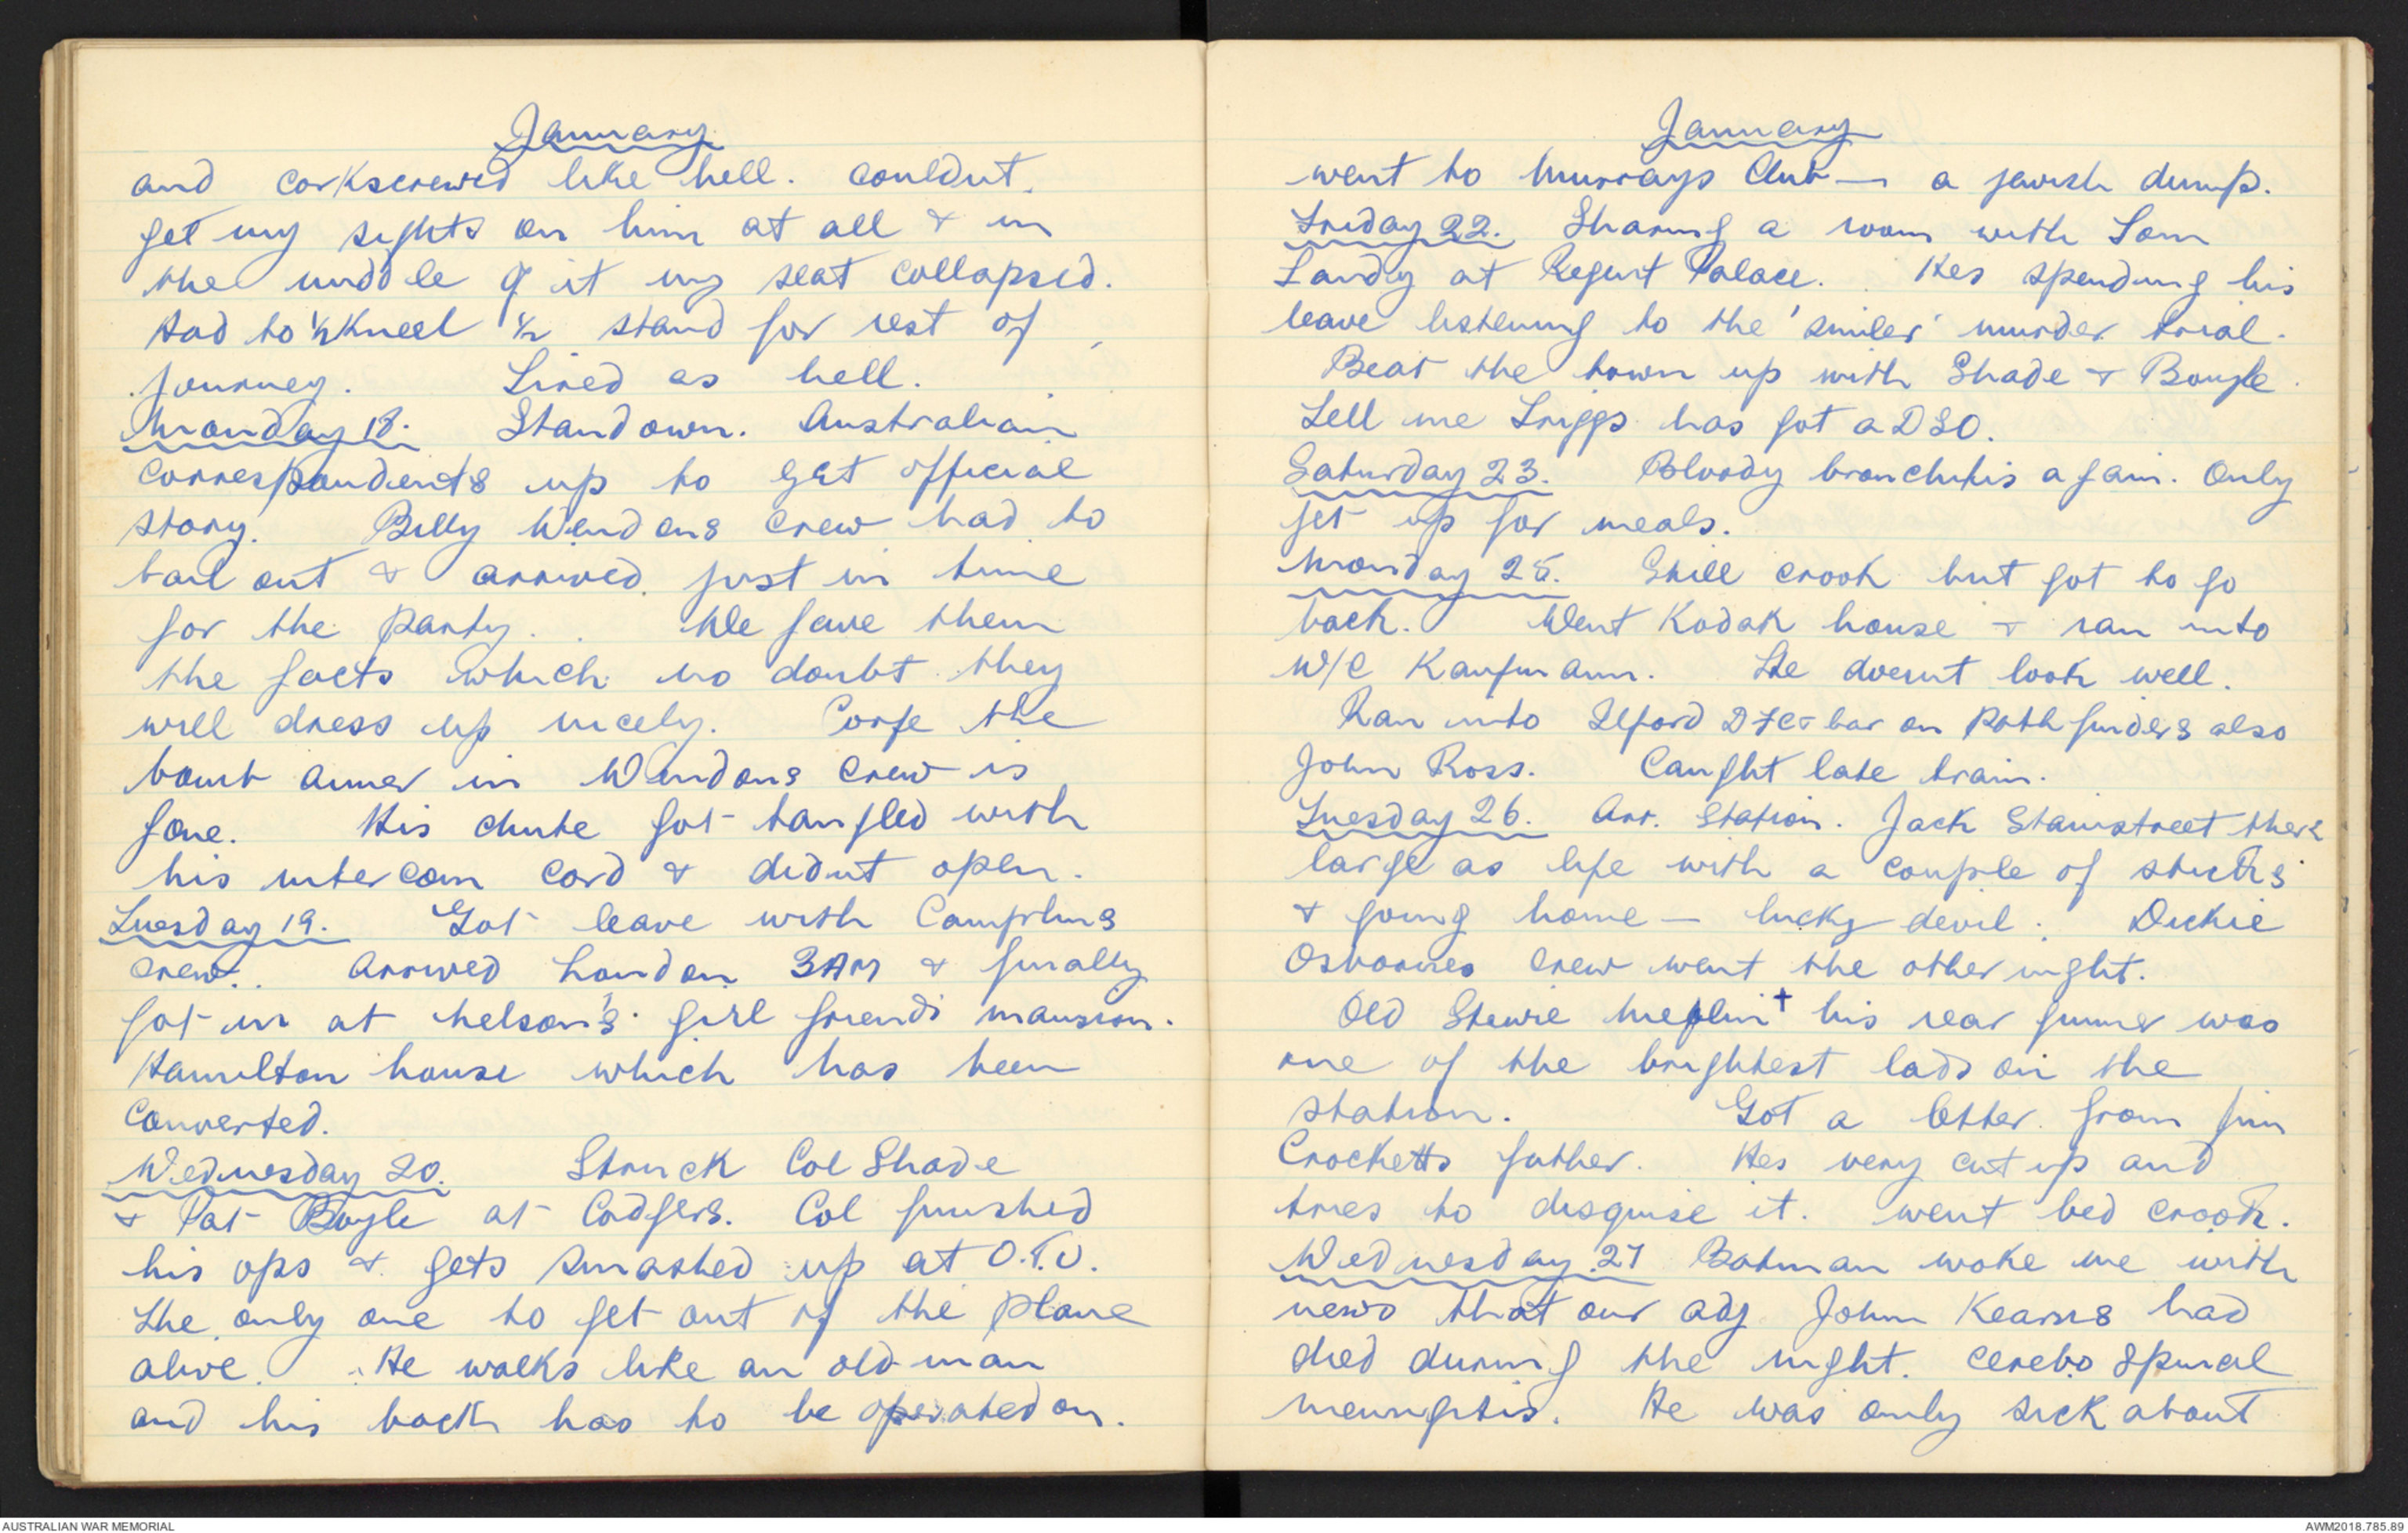 January
and corkscrewed like hell. Couldnt
get my sights on him at all & in
the middle of it my seat collapsed.
Had to ½ Kneel ½ stand for rest of
journey. Tired as hell.
Monday 18. Stand down. Australian
correspondents up to get official
story. Billy Wendons crew had to
bail out & arrived just in time
for the party. We gave them
the facts which no doubt they
will dress up nicely. Corfe the
bomb aimer in Wendons crew is
gone. His chute got tangled with
his intercom cord & didnt open.
Tuesday 19. Got leave with Complins
crew. Arrived London 3AM & finally
got in at Nelson's girl friends mansion.
Hamilton house which has been
converted.
Wednesday 20. Struck Col Shade
& Pat Boyle at Codgers. Col finished
his ops & gets smashed up at O.T.U.
the only one to get out of the plane
alive. He walks like an old man
and his back has to be operated on.
January
went to Murrays Club — a jewish dump.
Friday 22. Sharing a room with Tom
Landy at Regent Palace. Hes spending his
leave listening to the 'smiler' murder trial.
Beat the town up with Shade & Boyle
Tell me Triggs has got a DSO.
Saturday 23. Bloody bronchitis again. Only
get up for meals.
Monday 25. Still crook but got to go
back. Went Kodak house & ran into
W/C Kaufmann. He doesnt look well.
Ran into Ilford DFC & bar on Pathfinders also
John Ross. Caught late train.
Tuesday 26. Arr. Station. Jack Stainstreet there
large as life with a couple of sticks
& going home — lucky devil. Dickie
Osbornes crew went the other night.
Old Stewie + his rear gunner was
one of the brightest lads on the
station. Got a letter from Jim
Crocketts father. Hes very cut up and
tries to disguise it. Went bed crook.
Wednesday 27 Batman woke me with
news that our adj John Kearns had
died during the night. Cerebo Spinal
meningitis. He was only sick about
AUSTRALIAN WAR MEMORIAL
AWM2018.785.89